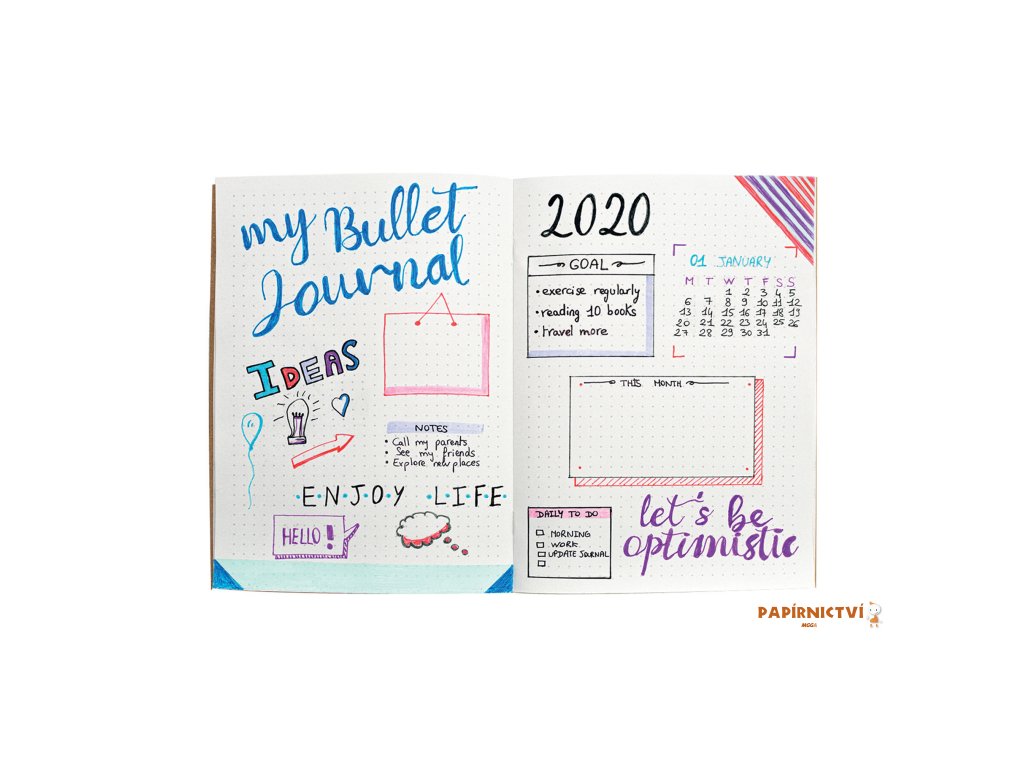 my Bullet
Journal
IDEAS
NOTES
• Call my parents
• See my friends
• Explore new places
·E·N·J·O·Y L·I·F·E·
HELLO!
2020
GOAL
• exercise regularly
• reading 10 books
• travel more
01 JANUARY
M T W T F S S
1 2 3 4 5
6 7 8 9 10 11 12
13 14 15 16 17 18 19
20 21 22 23 24 25 26
27 28 29 30 31
THIS MONTH
DAILY TO DO
MORNING
WORK
UPDATE JOURNAL
let's be
optimistic
PAPÍRNICTVÍ
MOGA